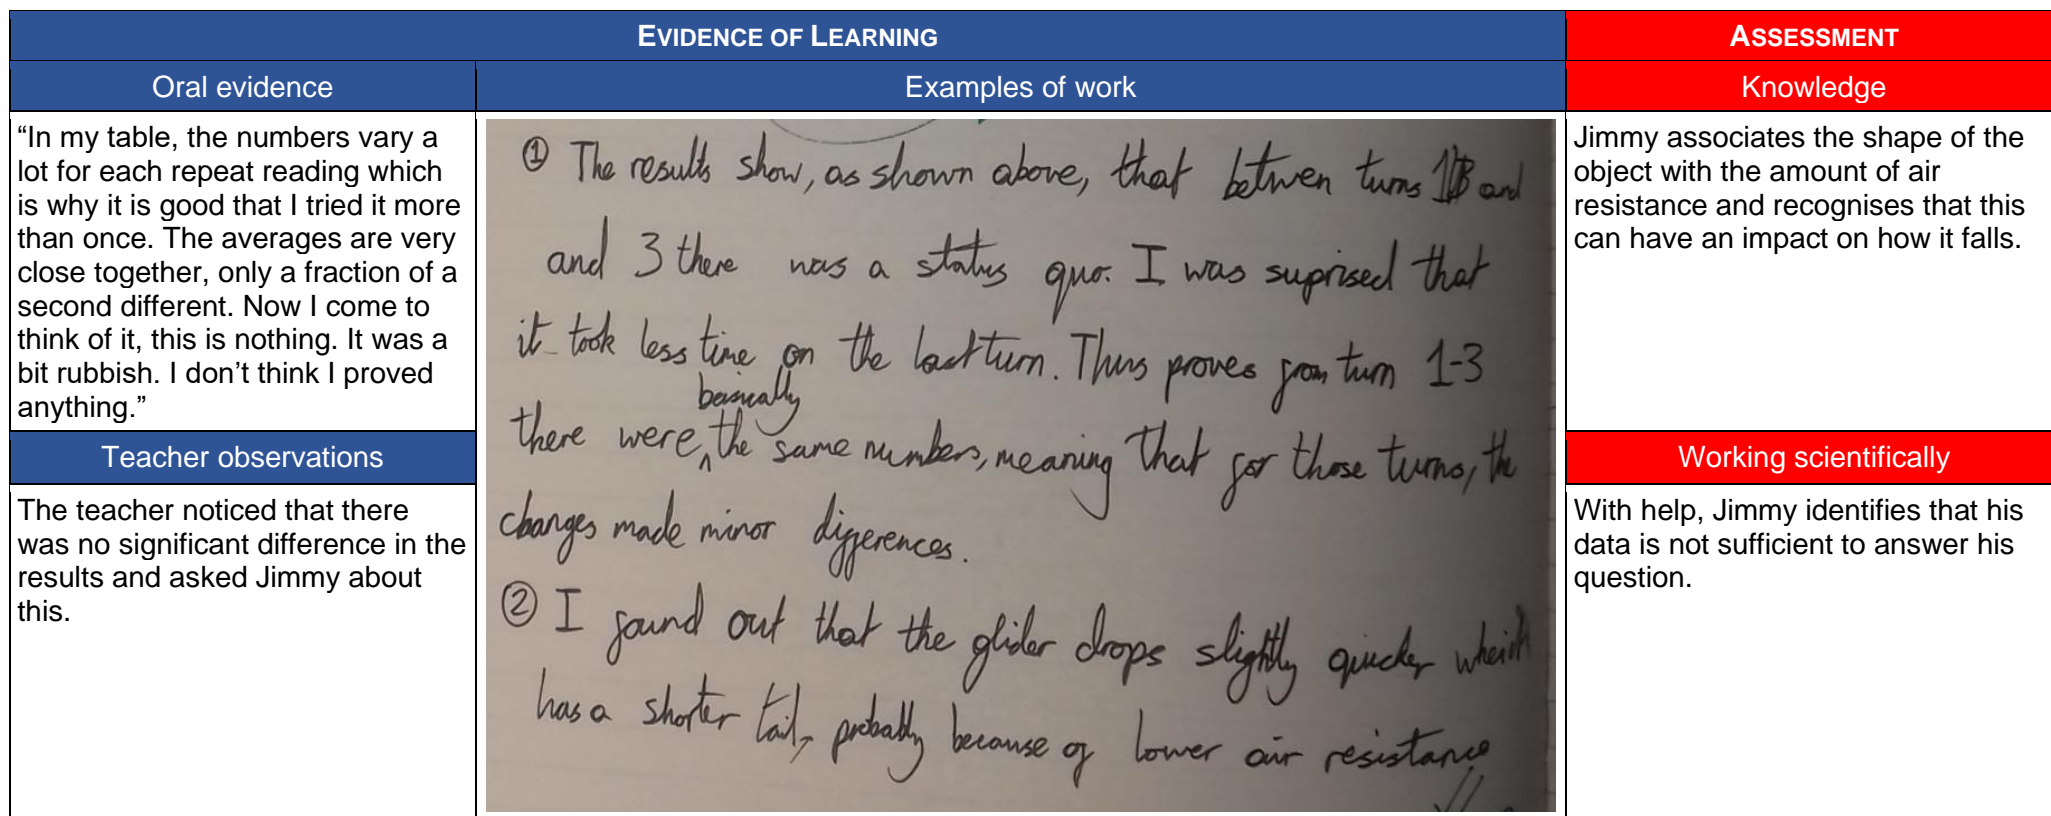 EVIDENCE OF LEARNING
ASSESSMENT
Oral evidence
Examples of work
Knowledge
“In my table, the numbers vary a
lot for each repeat reading which
is why it is good that I tried it more
than once. The averages are very
close together, only a fraction of a
second different. Now I come to
think of it, this is nothing. It was a
bit rubbish. I don’t think I proved
anything.”
Teacher observations
The teacher noticed that there
was no significant difference in the
results and asked Jimmy about
this.
① The results show, as shown above, that betwen turns 1 and
and 3 there was a status quo. I was suprised that
it took less time on the last turn. Thus proves from turn 1-3
basically
there were ^ the same numbers, meaning that for those turns, the
changes made minor differences.
② I found out that the glider drops slightly quicker
has a shorter tail, probably because of lower air resistance
Jimmy associates the shape of the
object with the amount of air
resistance and recognises that this
can have an impact on how it falls.
Working scientifically
With help, Jimmy identifies that his
data is not sufficient to answer his
question.